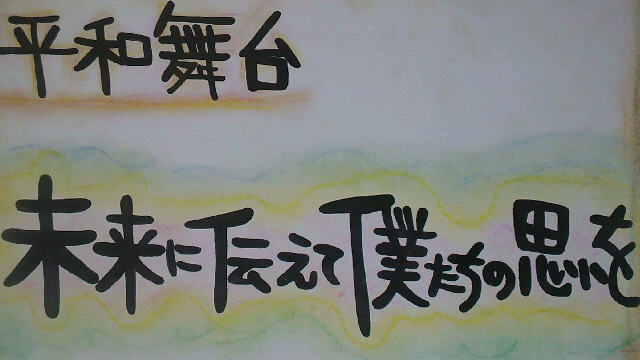 平和舞台
未来に伝えて僕たちの思いを